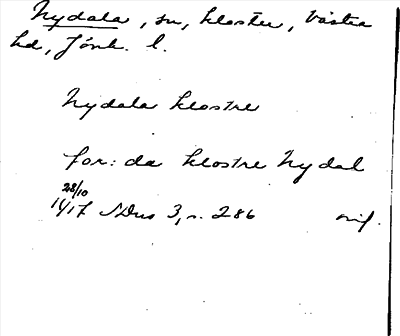 Nydala, sn, kloster, Västra
hd, Jönk. l.
Nydala klostre
for: da klostre Nydal
28/10
1417 SDns 3, s. 286 orig.